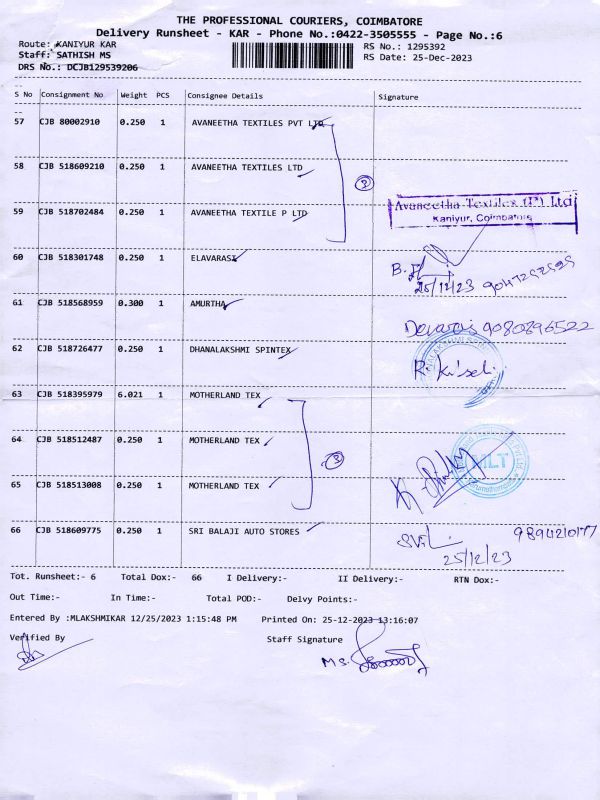 THE PROFESSIONAL COURIERS, COIMBATORE
Delivery Runsheet - KAR - Phone No.:0422-3505555 - Page No.:6
Route: KANIYUR KAR RS No.: 1295392
Staff: SATHISH MS RS Date: 25-Dec-2023
DRS No.: DCJB129539206
S No Consignment No Weight PCS Consignee Details Signature
57 CJB 80002910 0.250 1 AVANEETHA TEXTILES PVT LTD
58 CJB 518609210 0.250 1 AVANEETHA TEXTILES LTD
3
59 CJB 518702484 0.250 1 AVANEETHA TEXTILE P LTD
Avaneetha Textiles (P) Ltd
Kaniyur, Coimbatore
60 CJB 518301748 0.250 1 ELAVARASI
25/12/23
61 CJB 518568959 0.300 1 AMURTHA
Devaraj 9080896522
62 CJB 518726477 0.250 1 DHANALAKSHMI SPINTEX
63 CJB 518395979 6.021 1 MOTHERLAND TEX
64 CJB 518512487 0.250 1 MOTHERLAND TEX
3 MLT
65 CJB 518513008 0.250 1 MOTHERLAND TEX
66 CJB 518609775 0.250 1 SRI BALAJI AUTO STORES
25/12/23
Tot. Runsheet:- 6 Total Dox:- 66 I Delivery:- II Delivery:- RTN Dox:-
Out Time:- In Time:- Total POD:- Delvy Points:-
Entered By :MLAKSHMIKAR 12/25/2023 1:15:48 PM Printed On: 25-12-2023 13:16:07
Verified By Staff Signature